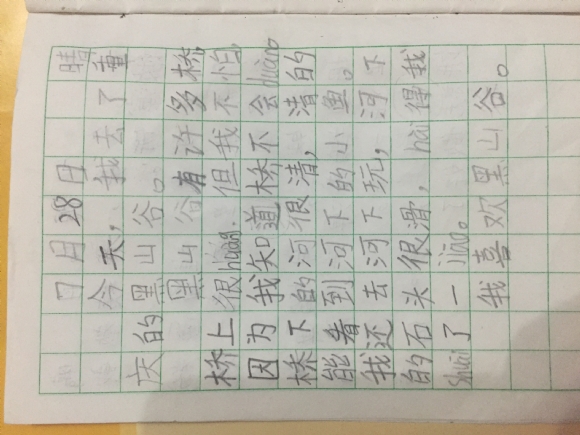 7月28日 晴
今天,我去了重
庆的黑山谷。
黑山谷有许多桥,
桥上很huàng.但我不怕,
因为我知道桥不会diào
桥下的河很清,清的
能看到河下的小鱼。
我还去河下玩,河下
的石头很滑,hài得我
shuāi了一jiāo。
我喜欢黑山谷。